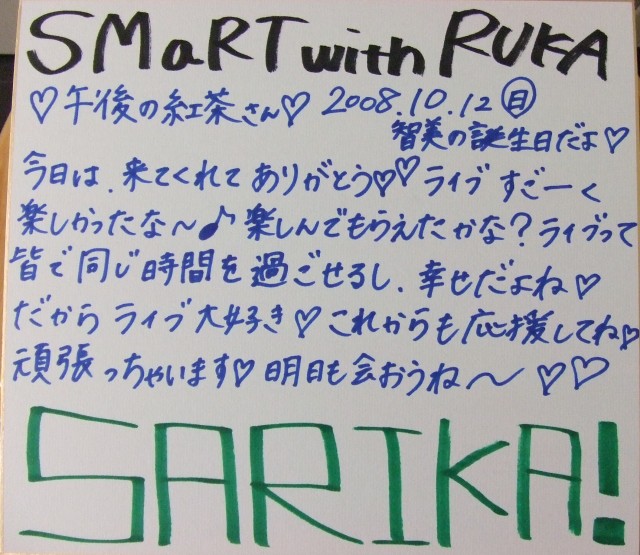 SMaRT with RUKA
♡午後の紅茶さん♡ 2008.10.12㊐
智美の誕生日だよ♡
今日は、来てくれて ありがとう♡♡ ライブ すごーく
楽しかったな〜♪ 楽しんでもらえたかな？ライブって
皆で同じ時間を過ごせるし、幸せだよね♡
だから ライブ大好き♡ これからも応援してね♡
頑張っちゃいます♡ 明日も会おうね〜 ♡♡
SARIKA!